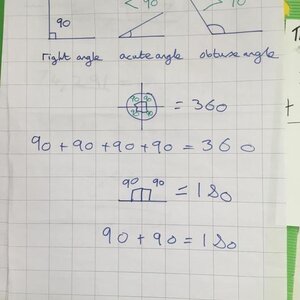 < 90 > 90
90
right angle acute angle obtuse angle
90 90 90 90 = 360
90 + 90 + 90 + 90 = 360
90 90 = 180
90 + 90 = 180